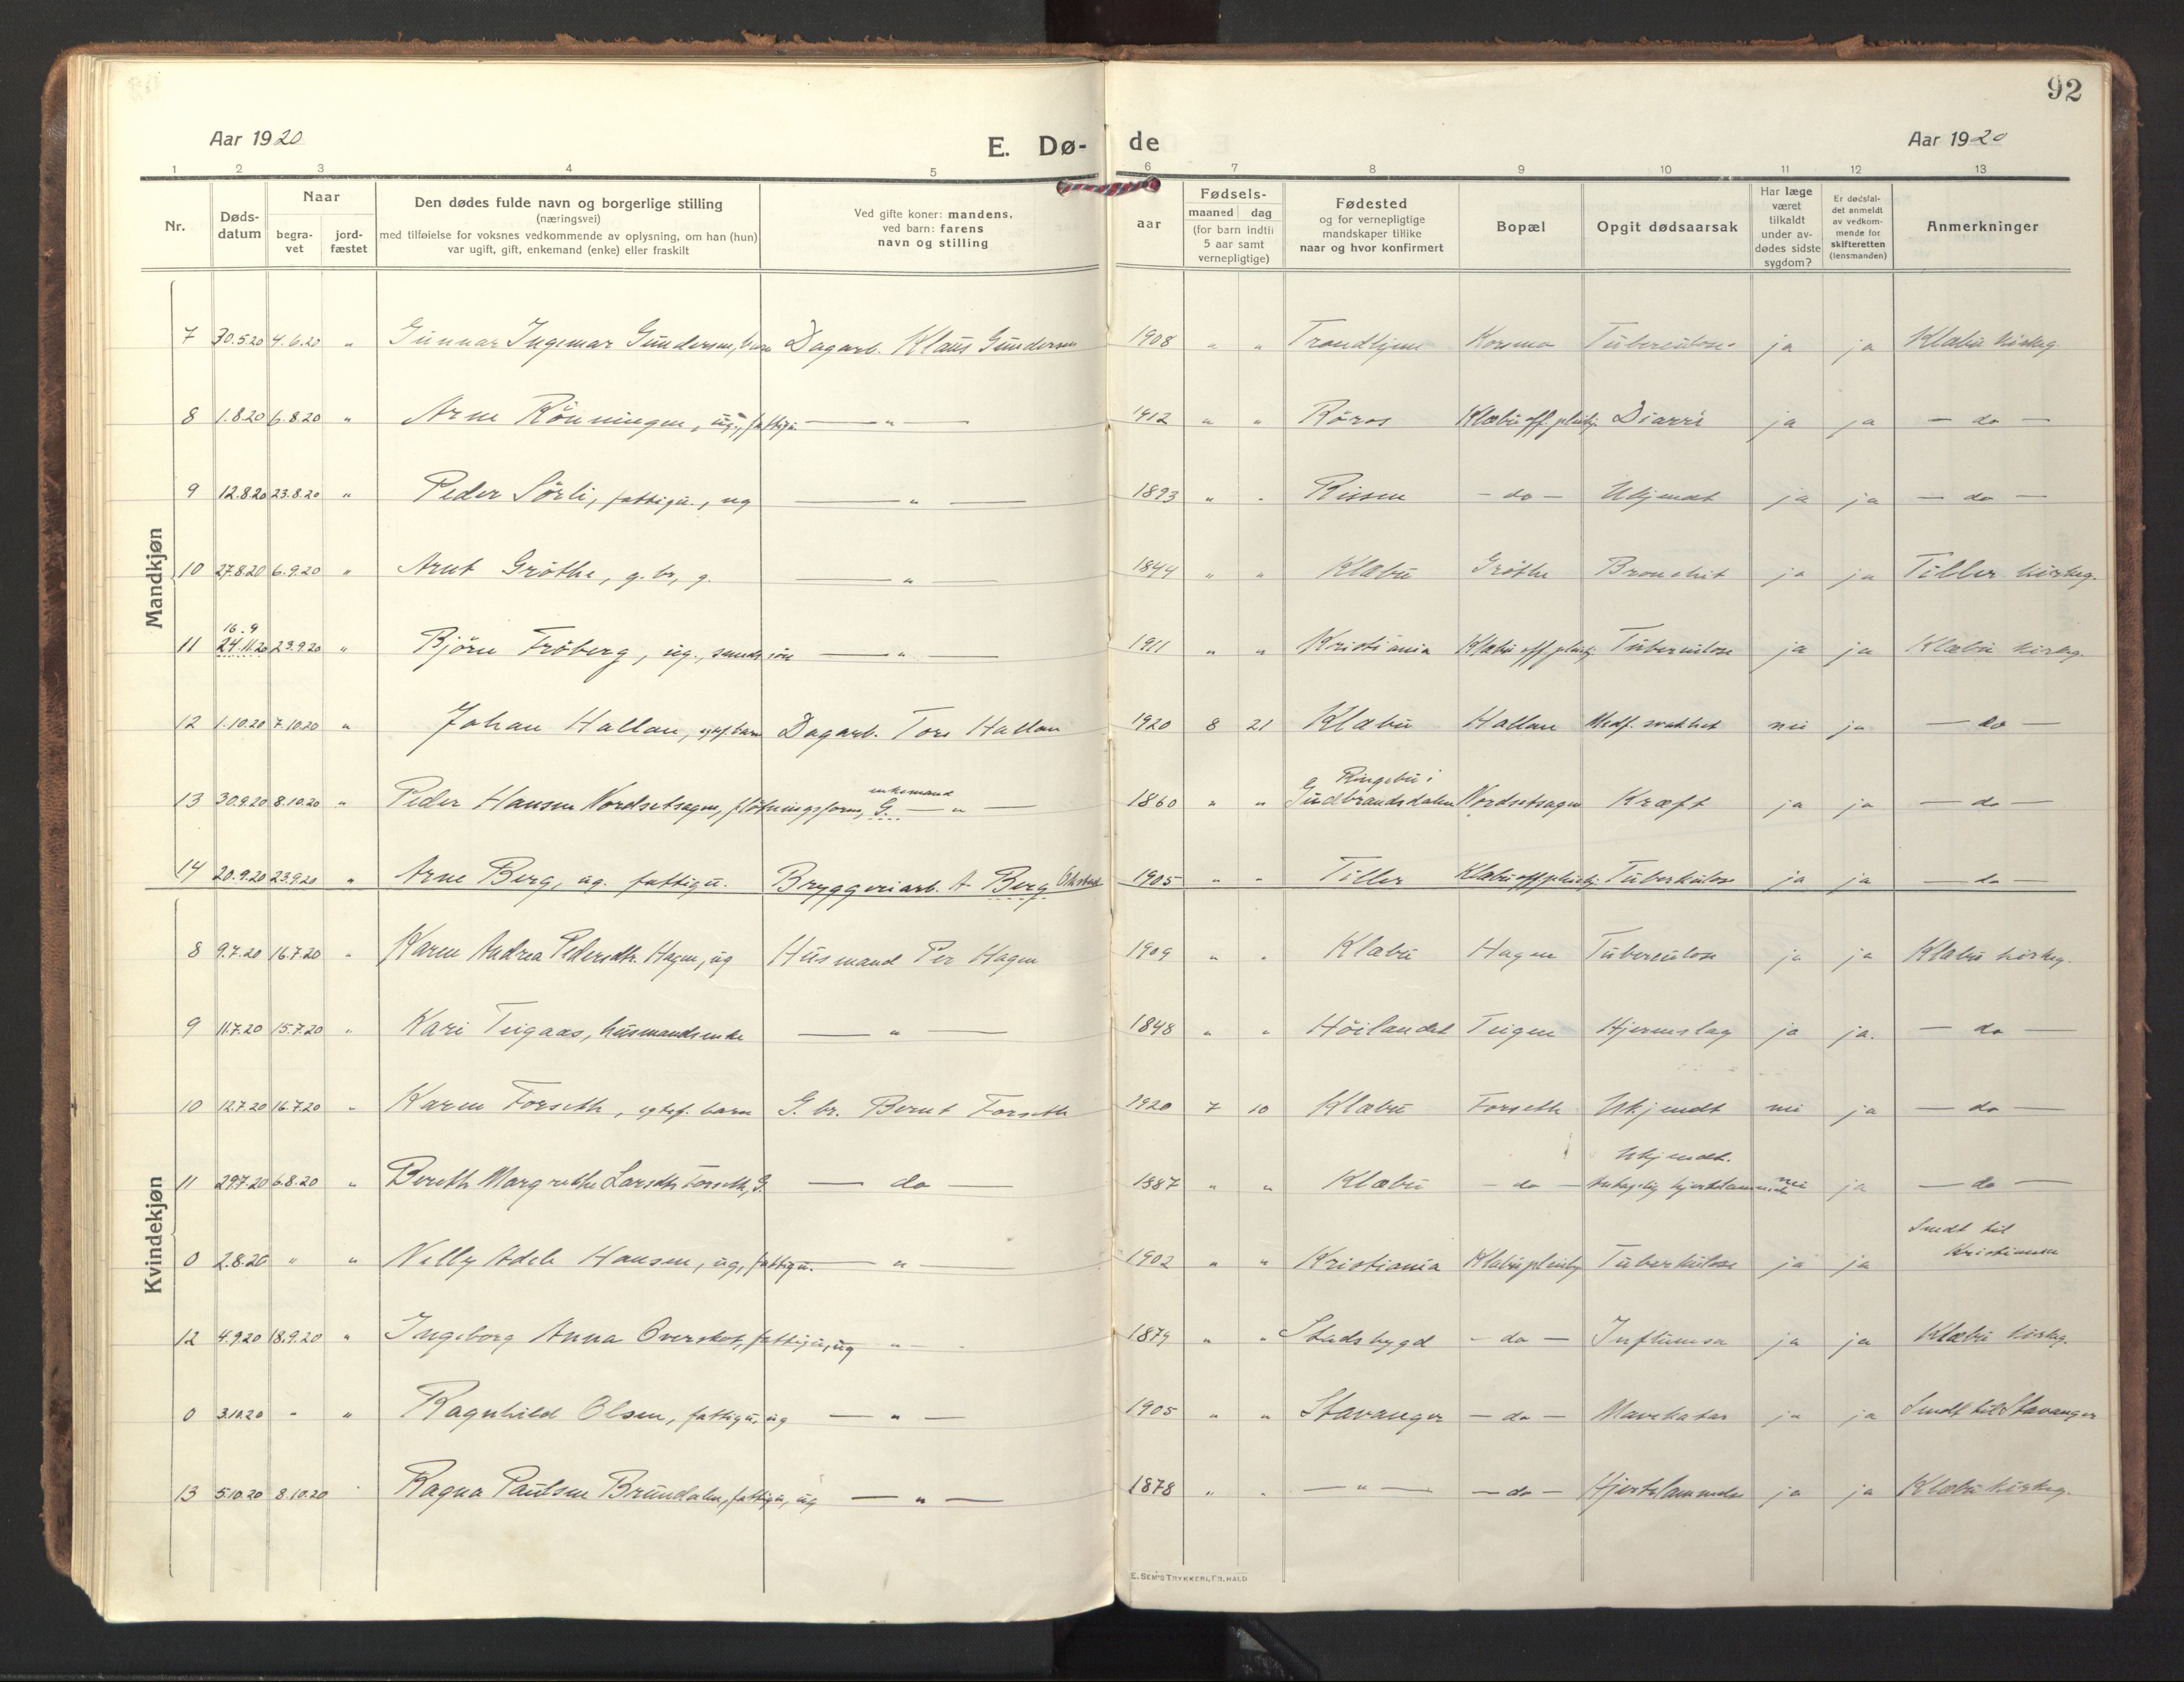 92
Aar 1920 E. Dø- de Aar 1920
1 2 3 4 5 6 7 8 9 10 11 12 13
Nr.
Døds-
datum
Naar
begra-
vet
jord-
fæstet
Den dødes fulde navn og borgerlige stilling
(næringsvei)
med tilføielse for voksnes vedkommende av oplysning, om han (hun)
var ugift, gift, enkemand (enke) eller fraskilt
Ved gifte koner: mandens,
ved barn: farens
navn og stilling
aar
Fødsels-
maaned dag
(for barn indtil
5 aar samt
vernepligtige)
Fødested
og for vernepligtige
mandskaper tillike
naar og hvor konfirmert
Bopæl
Opgit dødsaarsak
Har læge
været
tilkaldt
under av-
dødes sidste
sygdom?
Er dødsfal-
det anmeldt
av vedkom-
mende for
skifteretten
(lensmanden)
Anmerkninger
Mandkjøn
7 30.5.20 4.6.20 " Gunnar Ingemar Gundersen, Dagarb. Klaus Gundersen 1908 " " Trondhjem Korsmo Tuberculose ja ja Klæbu kirkeg.
8 1.8.20 6.8.20 " Arne Rönningen, ug., fattigu. — " — 1912 " " Röros Klæbu off. pleiehj. Diarré ja ja — do —
9 12.8.20 23.8.20 " Peder Sörli, fattigu., ug — " — 1893 " " Rissen — do — Ukjendt ja ja — do —
10 27.8.20 6.9.20 " Arnt Gröthe, g. br., g. — " — 1844 " " Klæbu Gröthe Bronchit ja ja Tiller kirkeg.
16.9
11 24.11.20 23.9.20 " Björn Fröberg, ug., — " — 1911 " " Kristiania Klæbu off. pleiehj. Tuberculose ja ja Klæbu kirkeg.
12 1.10.20 7.10.20 " Johan Hallan, egtef. barn Dagarb. Tore Hallan 1920 8 21 Klæbu Hallan Medf. svakhet nei ja — do —
enkemand Ringebu i
13 30.9.20 8.10.20 " Peder Hansen Nordsetsagen, flötningsform, G. — " — 1860 " " Gudbrandsdalen Nordsetsagen Kræft ja ja — do —
14 20.9.20 23.9.20 " Arne Berg, ug. fattigu. Bryggeriarb. A Berg 1905 " " Tiller Klæbu off. pleiehj. Tuberkulose ja ja — do —
Kvindekjøn
8 9.7.20 16.7.20 " Karen Andrea Pedersdtr. Hagen, ug Husmand Per Hagen 1909 " " Klæbu Hagen Tuberculose ja ja Klæbu kirkeg.
9 11.7.20 15.7.20 " Kari Teigaas, husmandsenke — " — 1848 " " Höilandet Teigen Hjerneslag ja ja. — do —
10 12.7.20 16.7.20 " Karen Forseth, egtef. barn G. br. Bernt Forseth 1920 7 10 Klæbu Forseth Ukjendt nei ja — do —
Ukjendt.
11 29.7.20 6.8.20 " Bereth Margrethe Larsdtr. Forseth, G. — do — 1887 " " Klæbu — do — Antagelig hjertelammelse nei ja — do —
Sendt til
0 2.8.20 " " Nelly Adele Hansen, ug., fattigu. — " — 1902 " " Kristiania Klæbu pleiehj. Tuberkulose ja ja Kristiania
12 4.9.20 18.9.20 " Ingeborg Anna Overskot, fattigu., ug — " — 1879 " " Stadsbygd — do — Influensa ja ja Klæbu kirkeg.
0 3.10.20 " " Ragnhild Olsen, fattigu., ug — " — 1905 " " Stavanger — do — Mavekatar ja ja Sendt til Stavanger
13 5.10.20 8.10.20 " Ragna Paulsen Brundalen, fattigu, ug — " — 1878 " " — " — — do — Hjertelammelse ja ja Klæbu kirkeg.
E. SEM'S TRYKKERI, FR.HALD